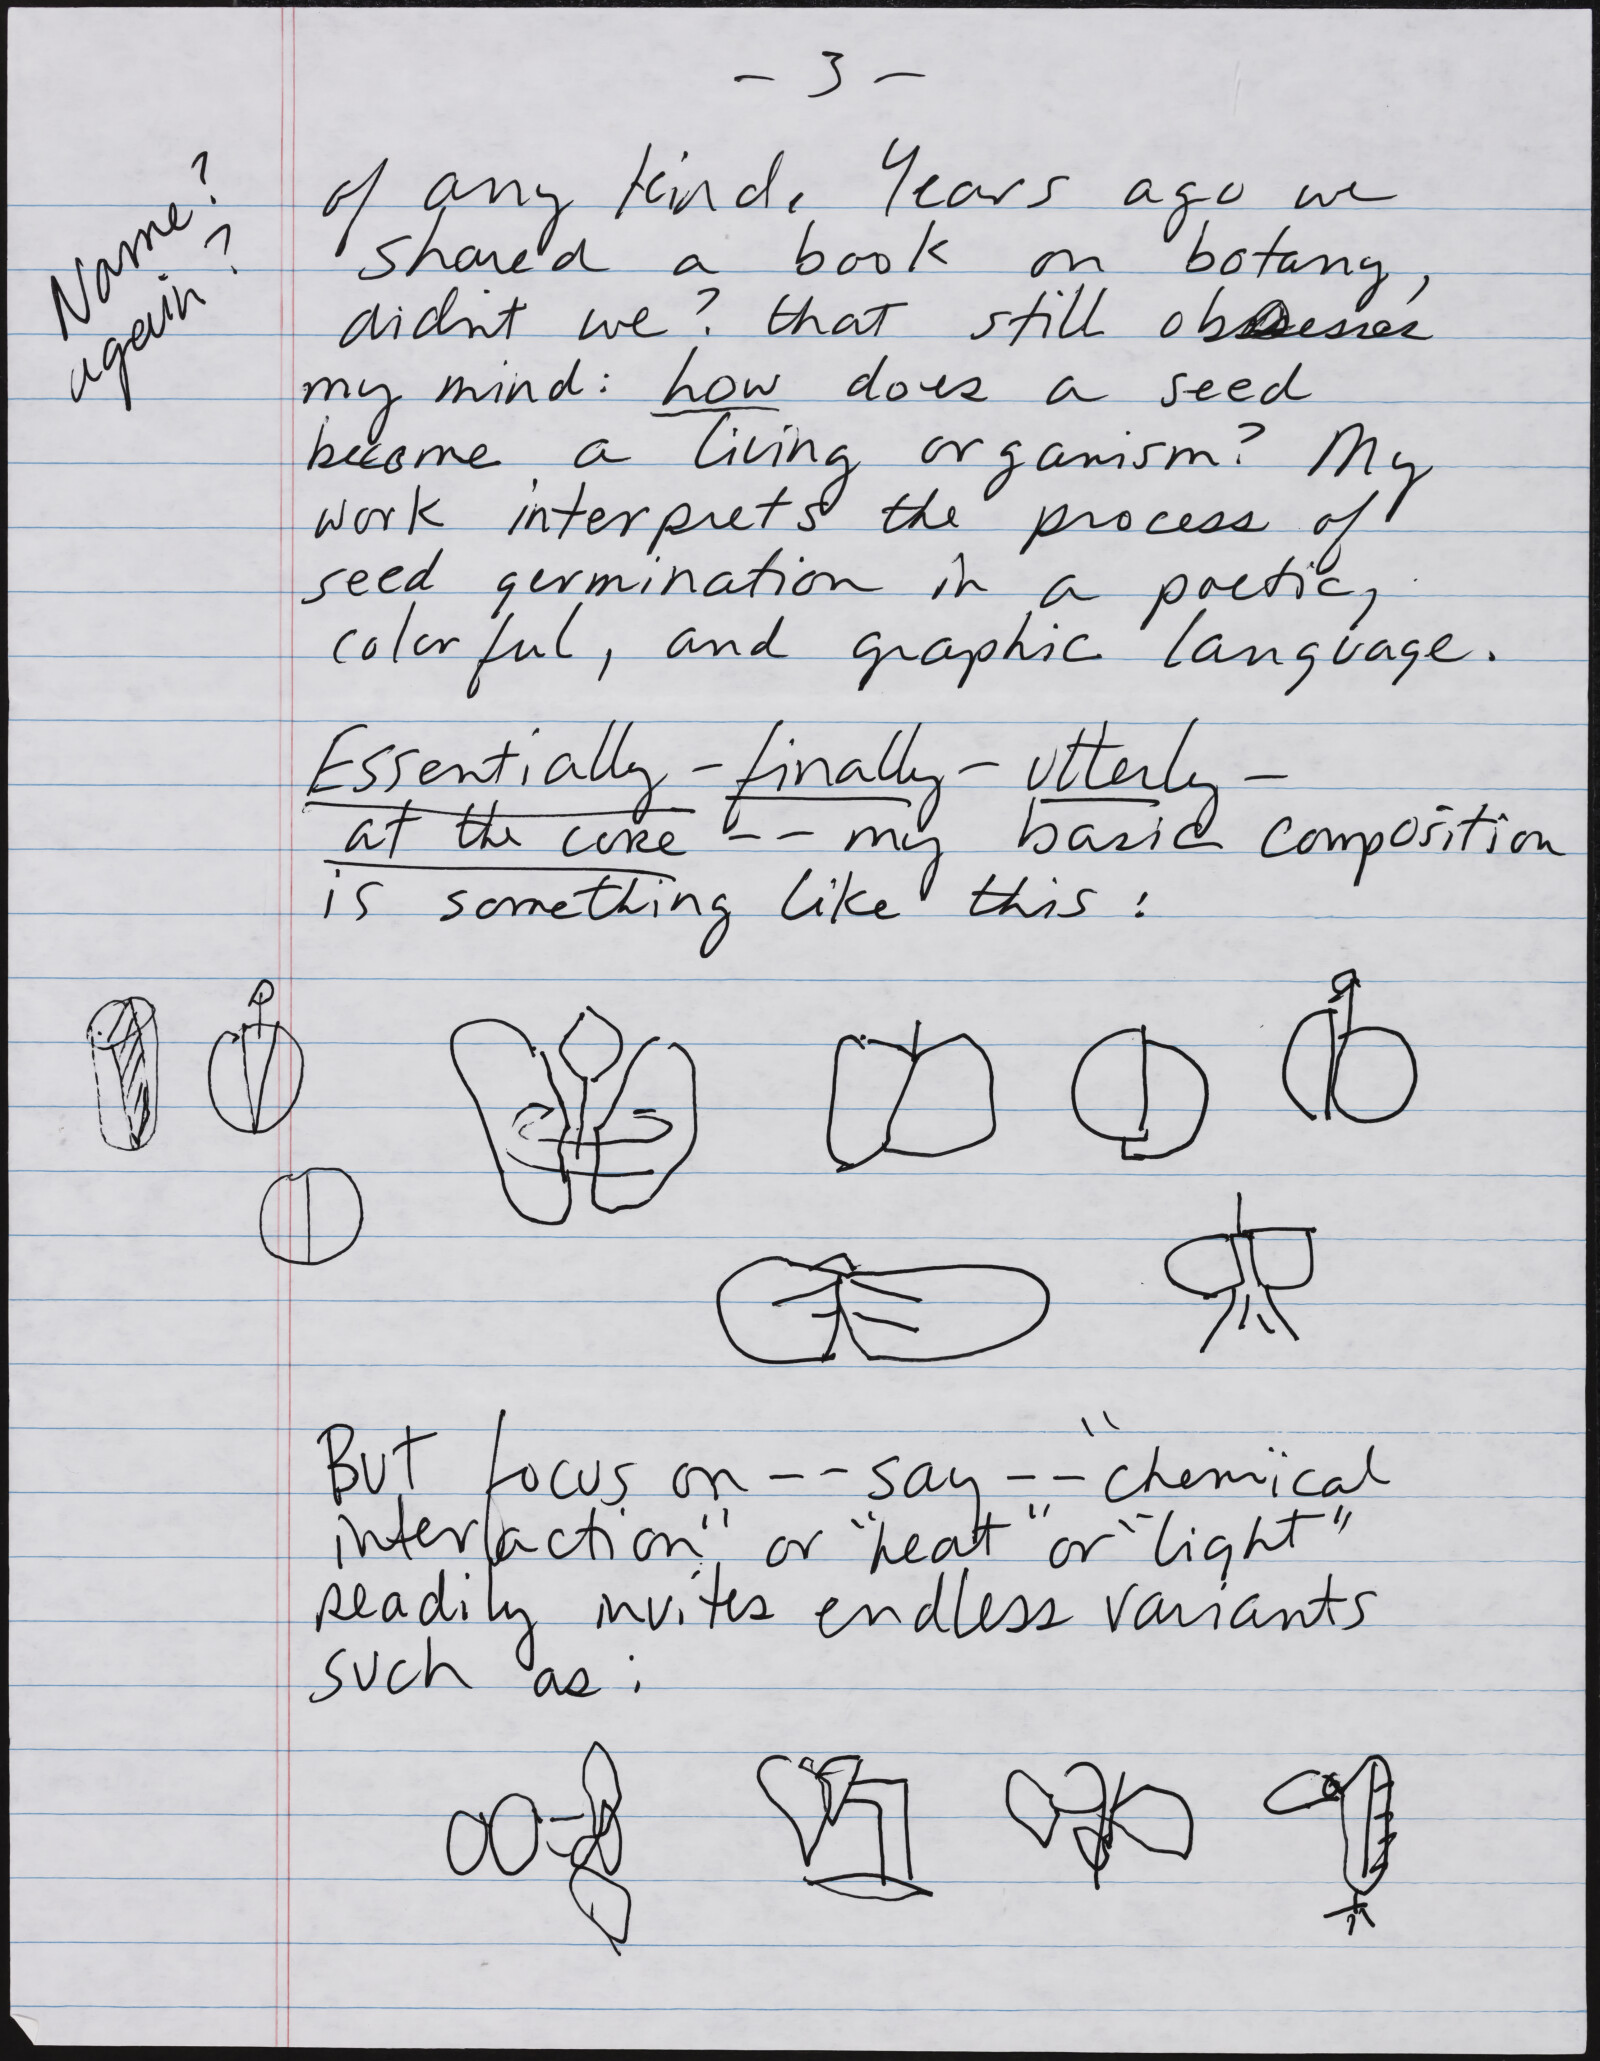 - 3 -
Name?
again?
of any kind. Years ago we
shared a book on botany,
didn't we? that still obsesses
my mind: how does a seed
become a living organism? My
work interprets the process of
seed germination in a poetic,
colorful, and graphic language.
Essentially - finally - utterly -
at the core -- my basic composition
is something like this:
But focus on -- say -- "chemical
interaction" or "heat" or "light"
readily invites endless variants
such as: